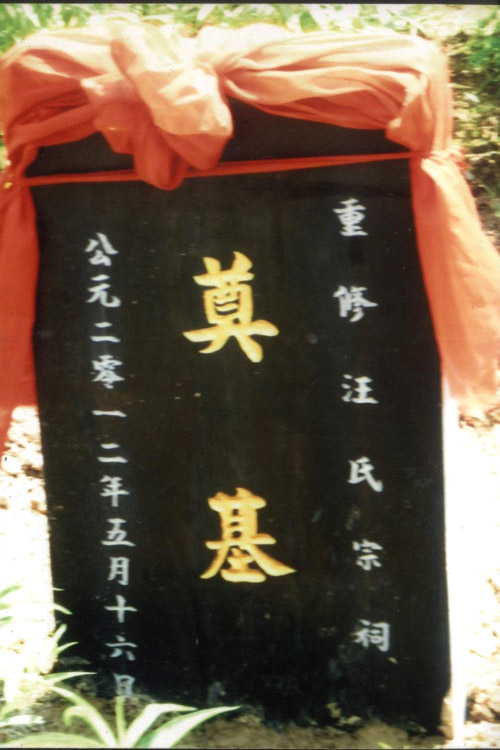 重修汪氏宗祠
奠基
公元二零一二年五月十六日